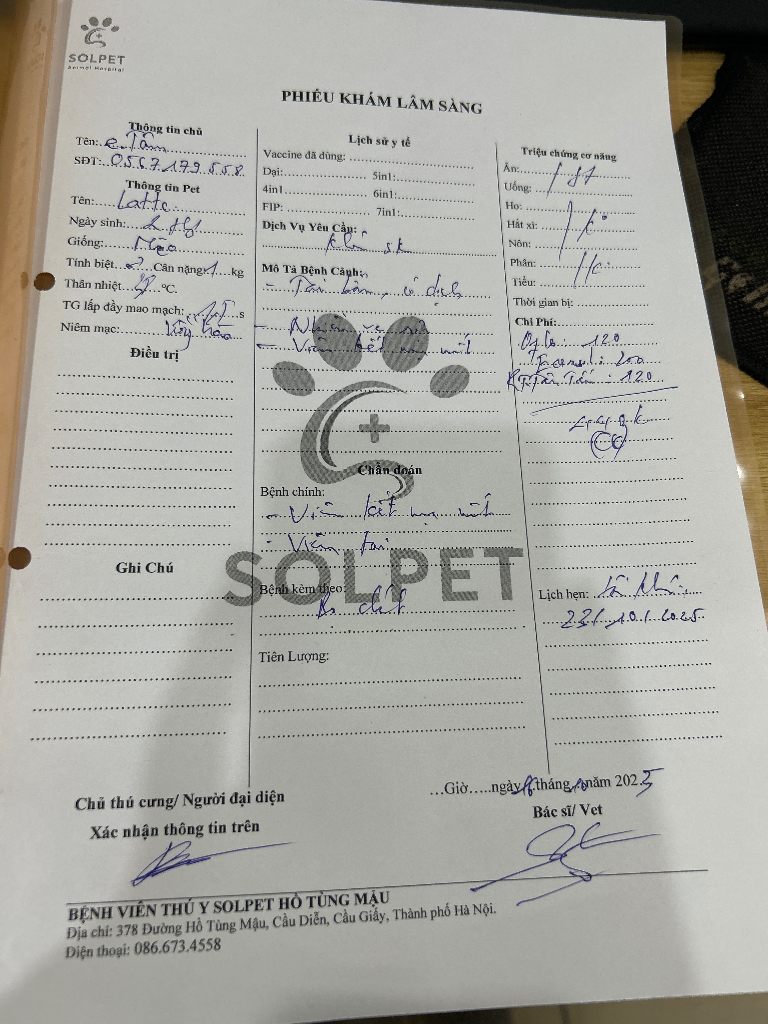 SOLPET
Animal Hospital
PHIẾU KHÁM LÂM SÀNG
Thông tin chủ
Tên: e. Tâm
SĐT: 0567 179 558
Thông tin Pet
Tên: Latte
Ngày sinh:
Giống: Mèo
Tính biệt Cân nặng: 1 kg
Thân nhiệt °C.
TG lấp đầy mao mạch: s
Niêm mạc: hồng hào
Điều trị
Ghi Chú
Lịch sử y tế
Vaccine đã dùng:
Dại: 5in1:
4in1 6in1:
FIP: 7in1:
Dịch Vụ Yêu Cầu:
Khám sk
Mô Tả Bệnh Cảnh:
- Tai bẩn, có dịch
- Nhiễm ve
- Viêm kết mạc mắt
Chẩn đoán
Bệnh chính:
- Viêm kết mạc mắt
- Viêm tai
SOLPET
Bệnh kèm theo:
Tiên Lượng:
Triệu chứng cơ năng
Ăn:
Uống:
Ho:
Hắt xì:
Nôn:
Phân:
Tiểu:
Thời gian bị:
Chi Phí:
: 120
: 200
: 120
Lịch hẹn:
23/10/2025
…Giờ…..ngày 16 tháng 10 năm 2025
Chủ thú cưng/ Người đại diện
Xác nhận thông tin trên
Bác sĩ/ Vet
BỆNH VIỆN THÚ Y SOLPET HỒ TÙNG MẬU
Địa chỉ: 378 Đường Hồ Tùng Mậu, Cầu Diễn, Cầu Giấy, Thành phố Hà Nội.
Điện thoại: 086.673.4558